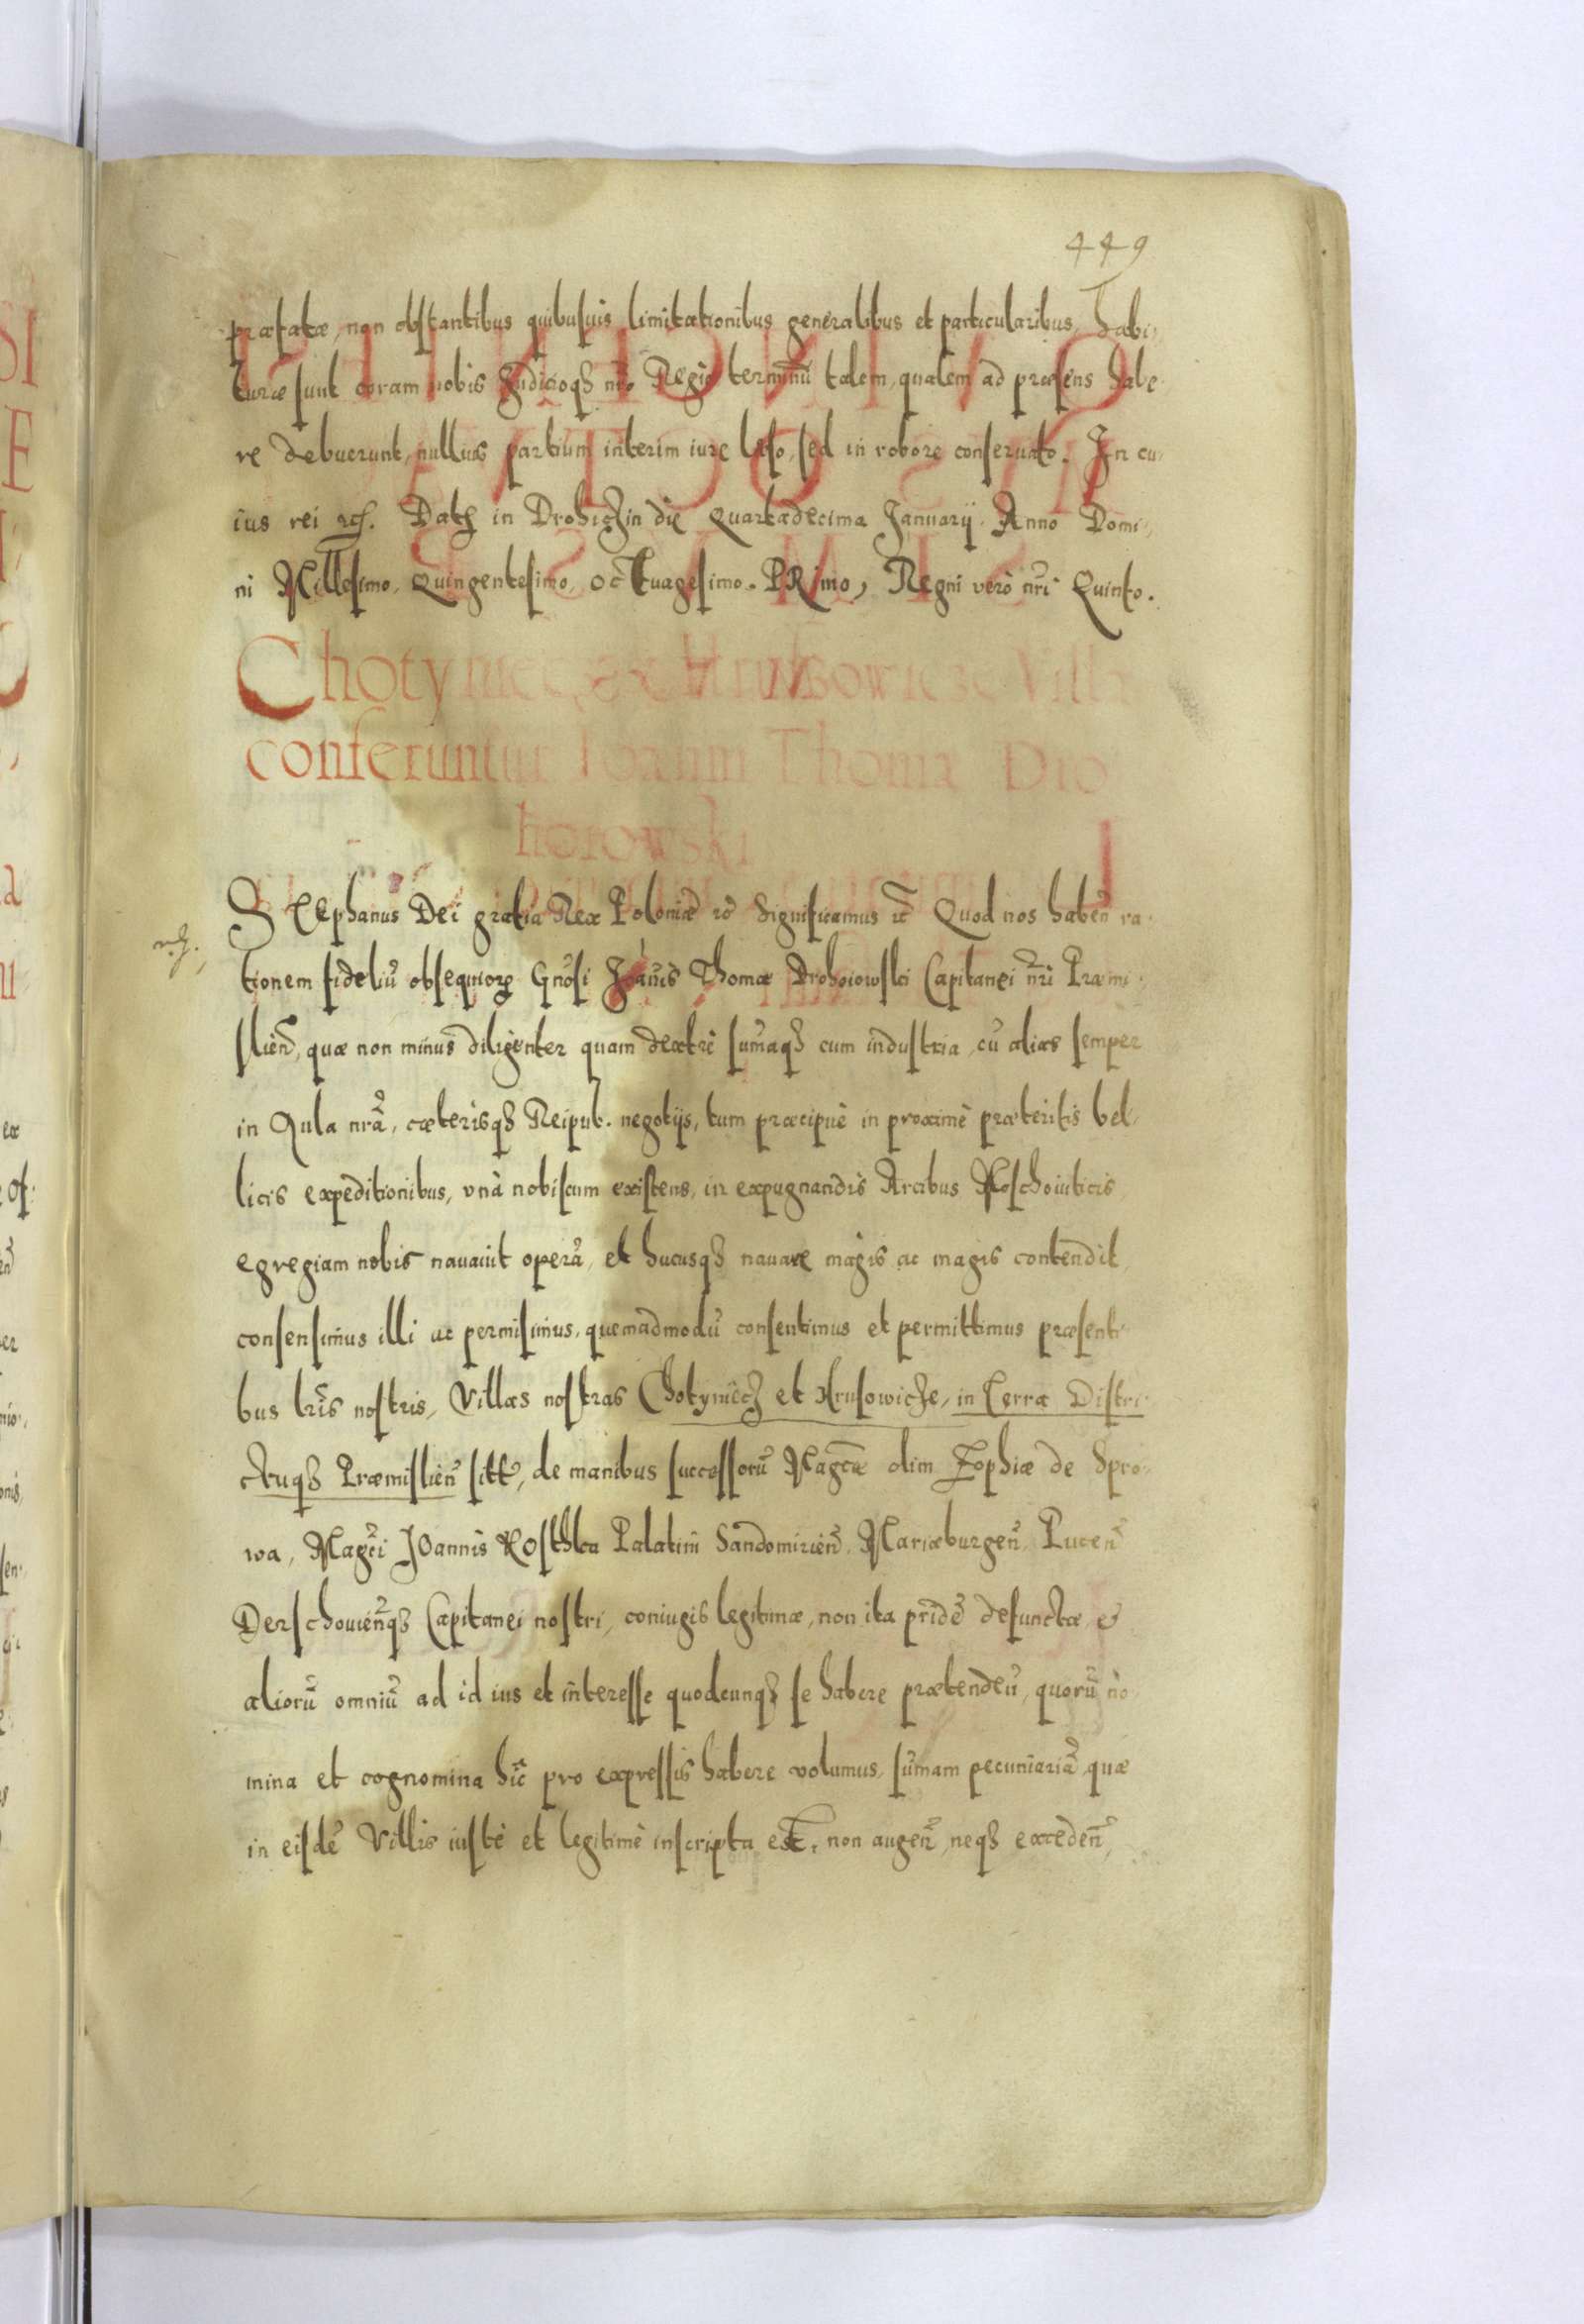 449
præfatæ, non obstantibus quibusuis limitationibus generalibus et particularibus, habi-
turæ sunt coram nobis Iudicioq₃ nro Regio terminũ talem, qualem ad præsens habe-
re debuerunt, nullius partium interim iure læso, sed in robore conseruato. In cu-
ius rei Dat in Drohiczin die Quartadecima Januarij. Anno Domi-
ni Millesimo, Quingentesimo, Octuagesimo. PRimo, Regni verò nri Quinto.
Chotyniecz, et Hrusowicze Villæ
conferuntur Ioanni Thomæ Dro
hoiowski
STEphanus Dei gratia Rex Poloniæ rc̃ Significamus rc̃ Quod nos haben̄ ra-
tionem fideliũ obsequiorꝝ Gnosi Joãnis Thomæ Drohoiowski Capitanei nri Præmi-
slien̄, quæ non minus diligenter quam dextrè sum̃aq₃ cum industria, cũ alias semper
in Aula nrã, cæterisq₃ Reipub. negotijs, tum præcipuè in proximè præteritis bel-
licis expeditionibus, vnà nobiscum existens, in expugnandis Arcibus Moschouiticis
egregiam nobis nauauit operã, et hucusq₃ nauare magis ac magis contendit,
consensimus illi ac permisimus, quemadmodũ consentimus et permittimus præsenti-
bus lris nostris, Villas nostras Chotyniecz et Hrusowicze, in Terra Distri-
ctuq₃ Præmislien̄ sitt, de manibus successorũ Magcæ olim Zophiæ de Spro-
wa, Magci JOannis KOsthka Palatini Sandomirien̄. Mariæburgen̄, Pucen̄
Derschouien̄q₃ Capitanei nostri, coniugis legitimæ, non ita pridẽ defunctæ, et
aliorũ omniũ ad id ius et interesse quodcunq₃ se habere prætenden̄, quorũ no-
mina et cognomina hic pro expressis habere volumus, sum̃am pecuniariã, quæ
in eisdẽ Villis iustè et legitimè inscripta est, non augen̄, neq₃ exceden̄,